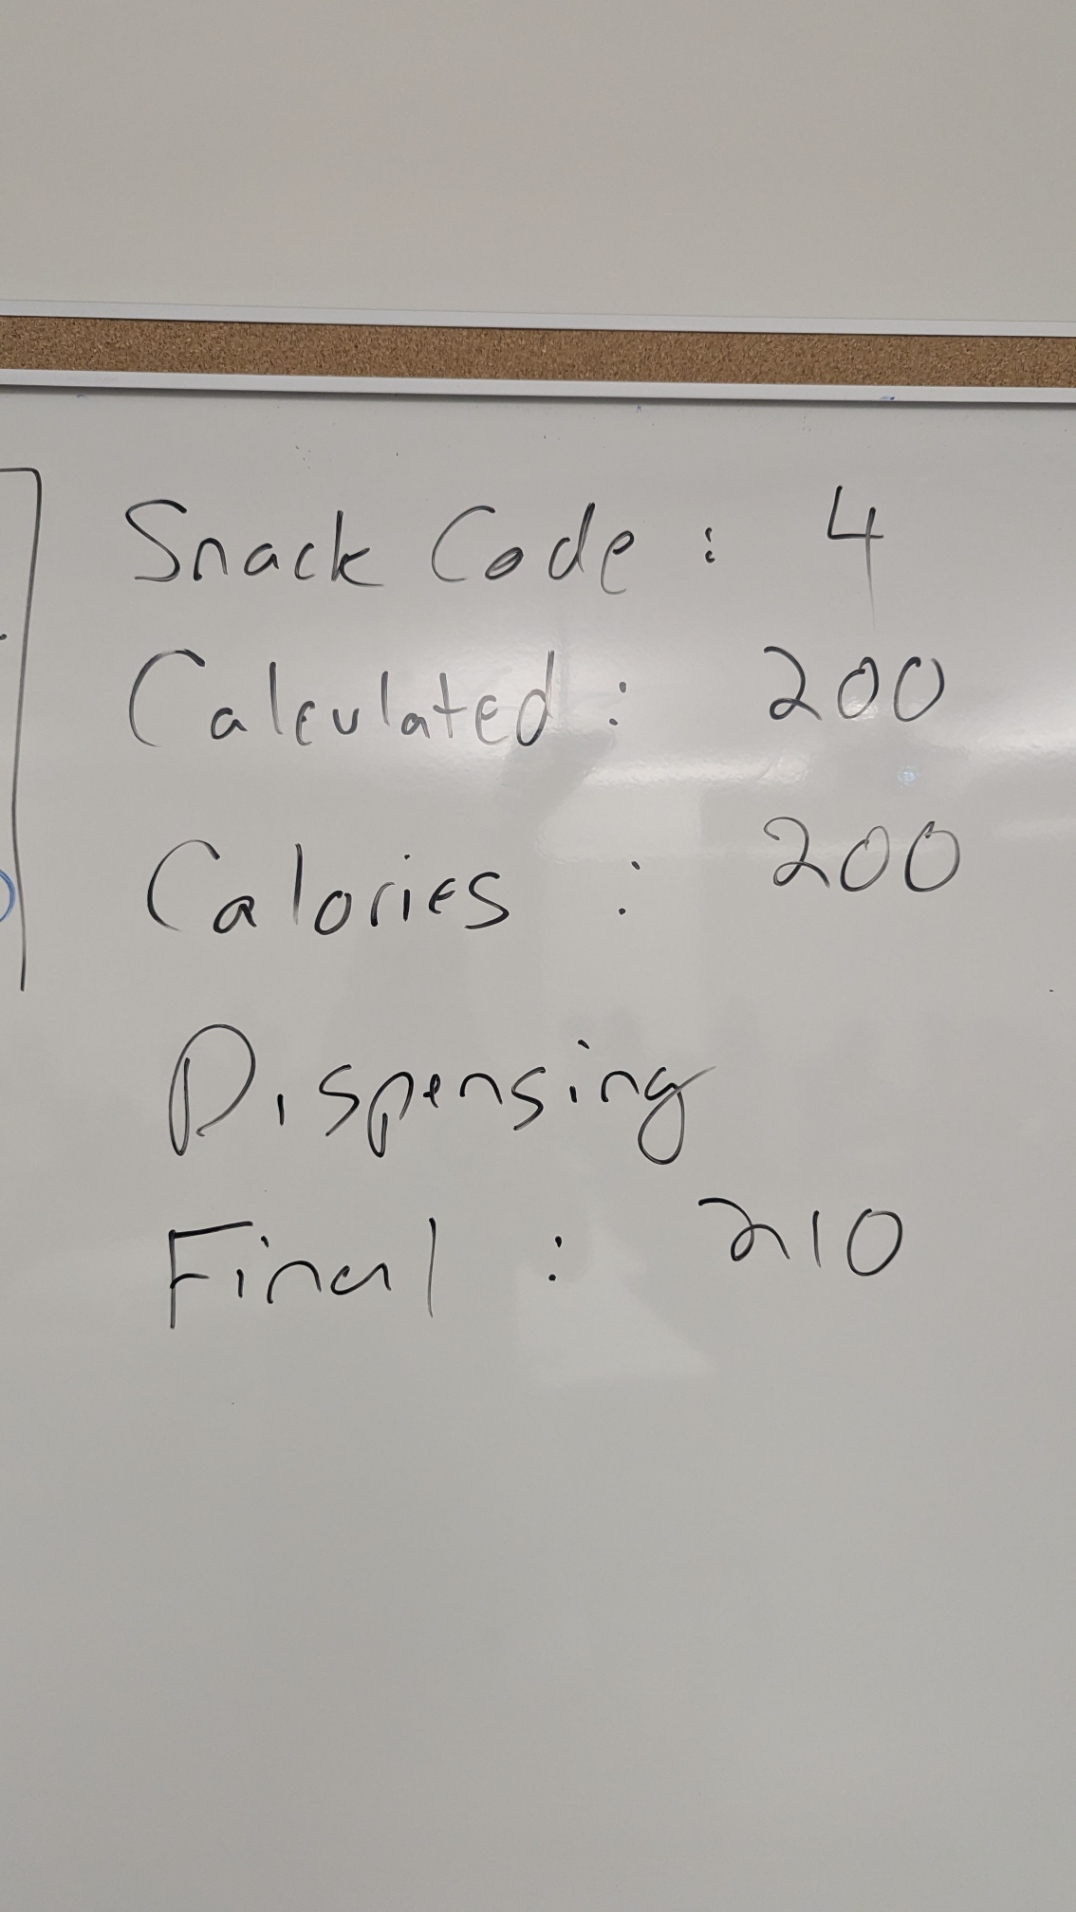 Snack Code : 4
Calculated : 200
Calories : 200
Dispensing
Final : 210